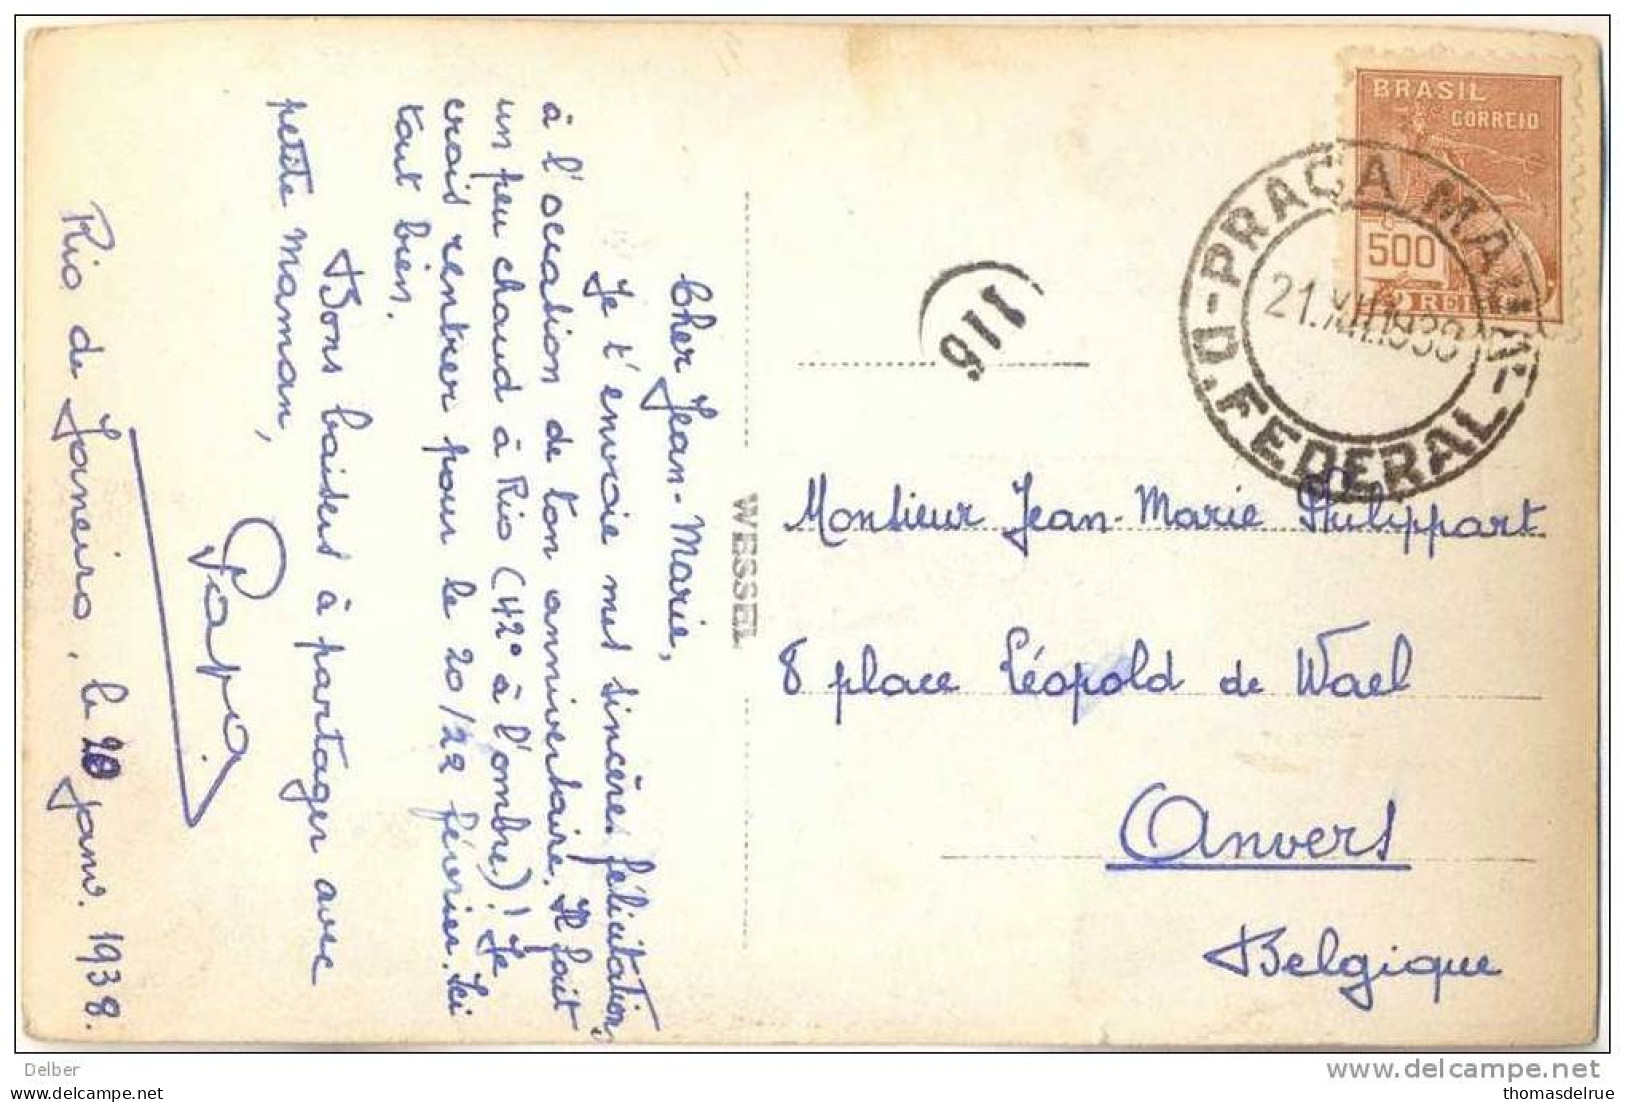 Cher Jean-Marie,
Je t'envoie mes sincères félicitations
à l'occasion de ton anniversaire. Il fait
un peu chaud à Rio (42° à l'ombre)! Je
crois rentrer pour le 20/22 février. Ici
tout bien.
Bons baisers à partager avec
petite maman,
Papa.
Rio de Janeiro, le 20 janv. 1938.
WESSEL
911
BRASIL
CORREIO
500
REIS
PRAÇA MAUÁ
D. FEDERAL
Monsieur Jean-Marie Philippart
8 place Léopold de Wael
Anvers
Belgique
Delber
www.delcampe.net
thomasdelrue